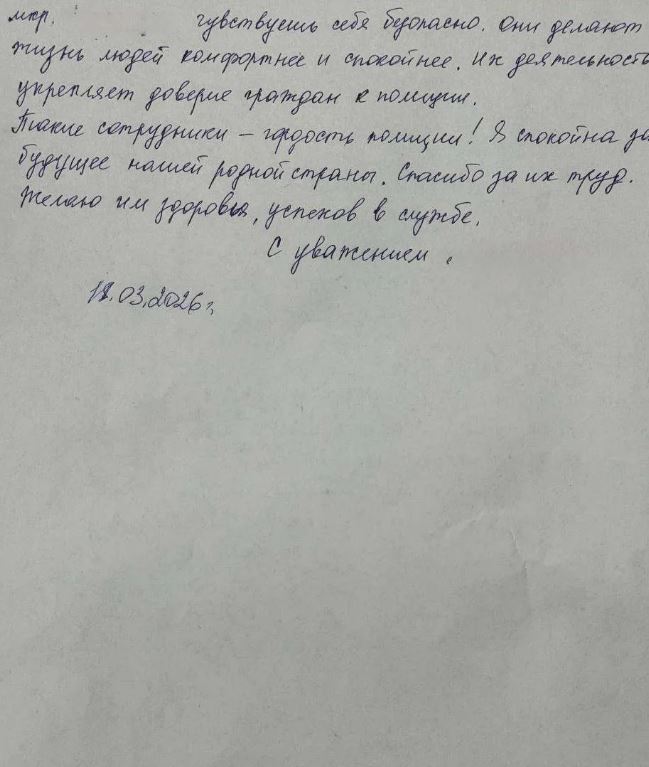 мкр. чувствуешь себя безопасно. Они делают
жизнь людей комфортнее и спокойнее. Их деятельность
укрепляет доверие граждан к полиции.
Такие сотрудники – гордость полиции! Я спокойна за
будущее нашей родной страны. Спасибо за их труд.
Желаю им здоровья, успехов в службе.
С уважением .
.03.2026г.